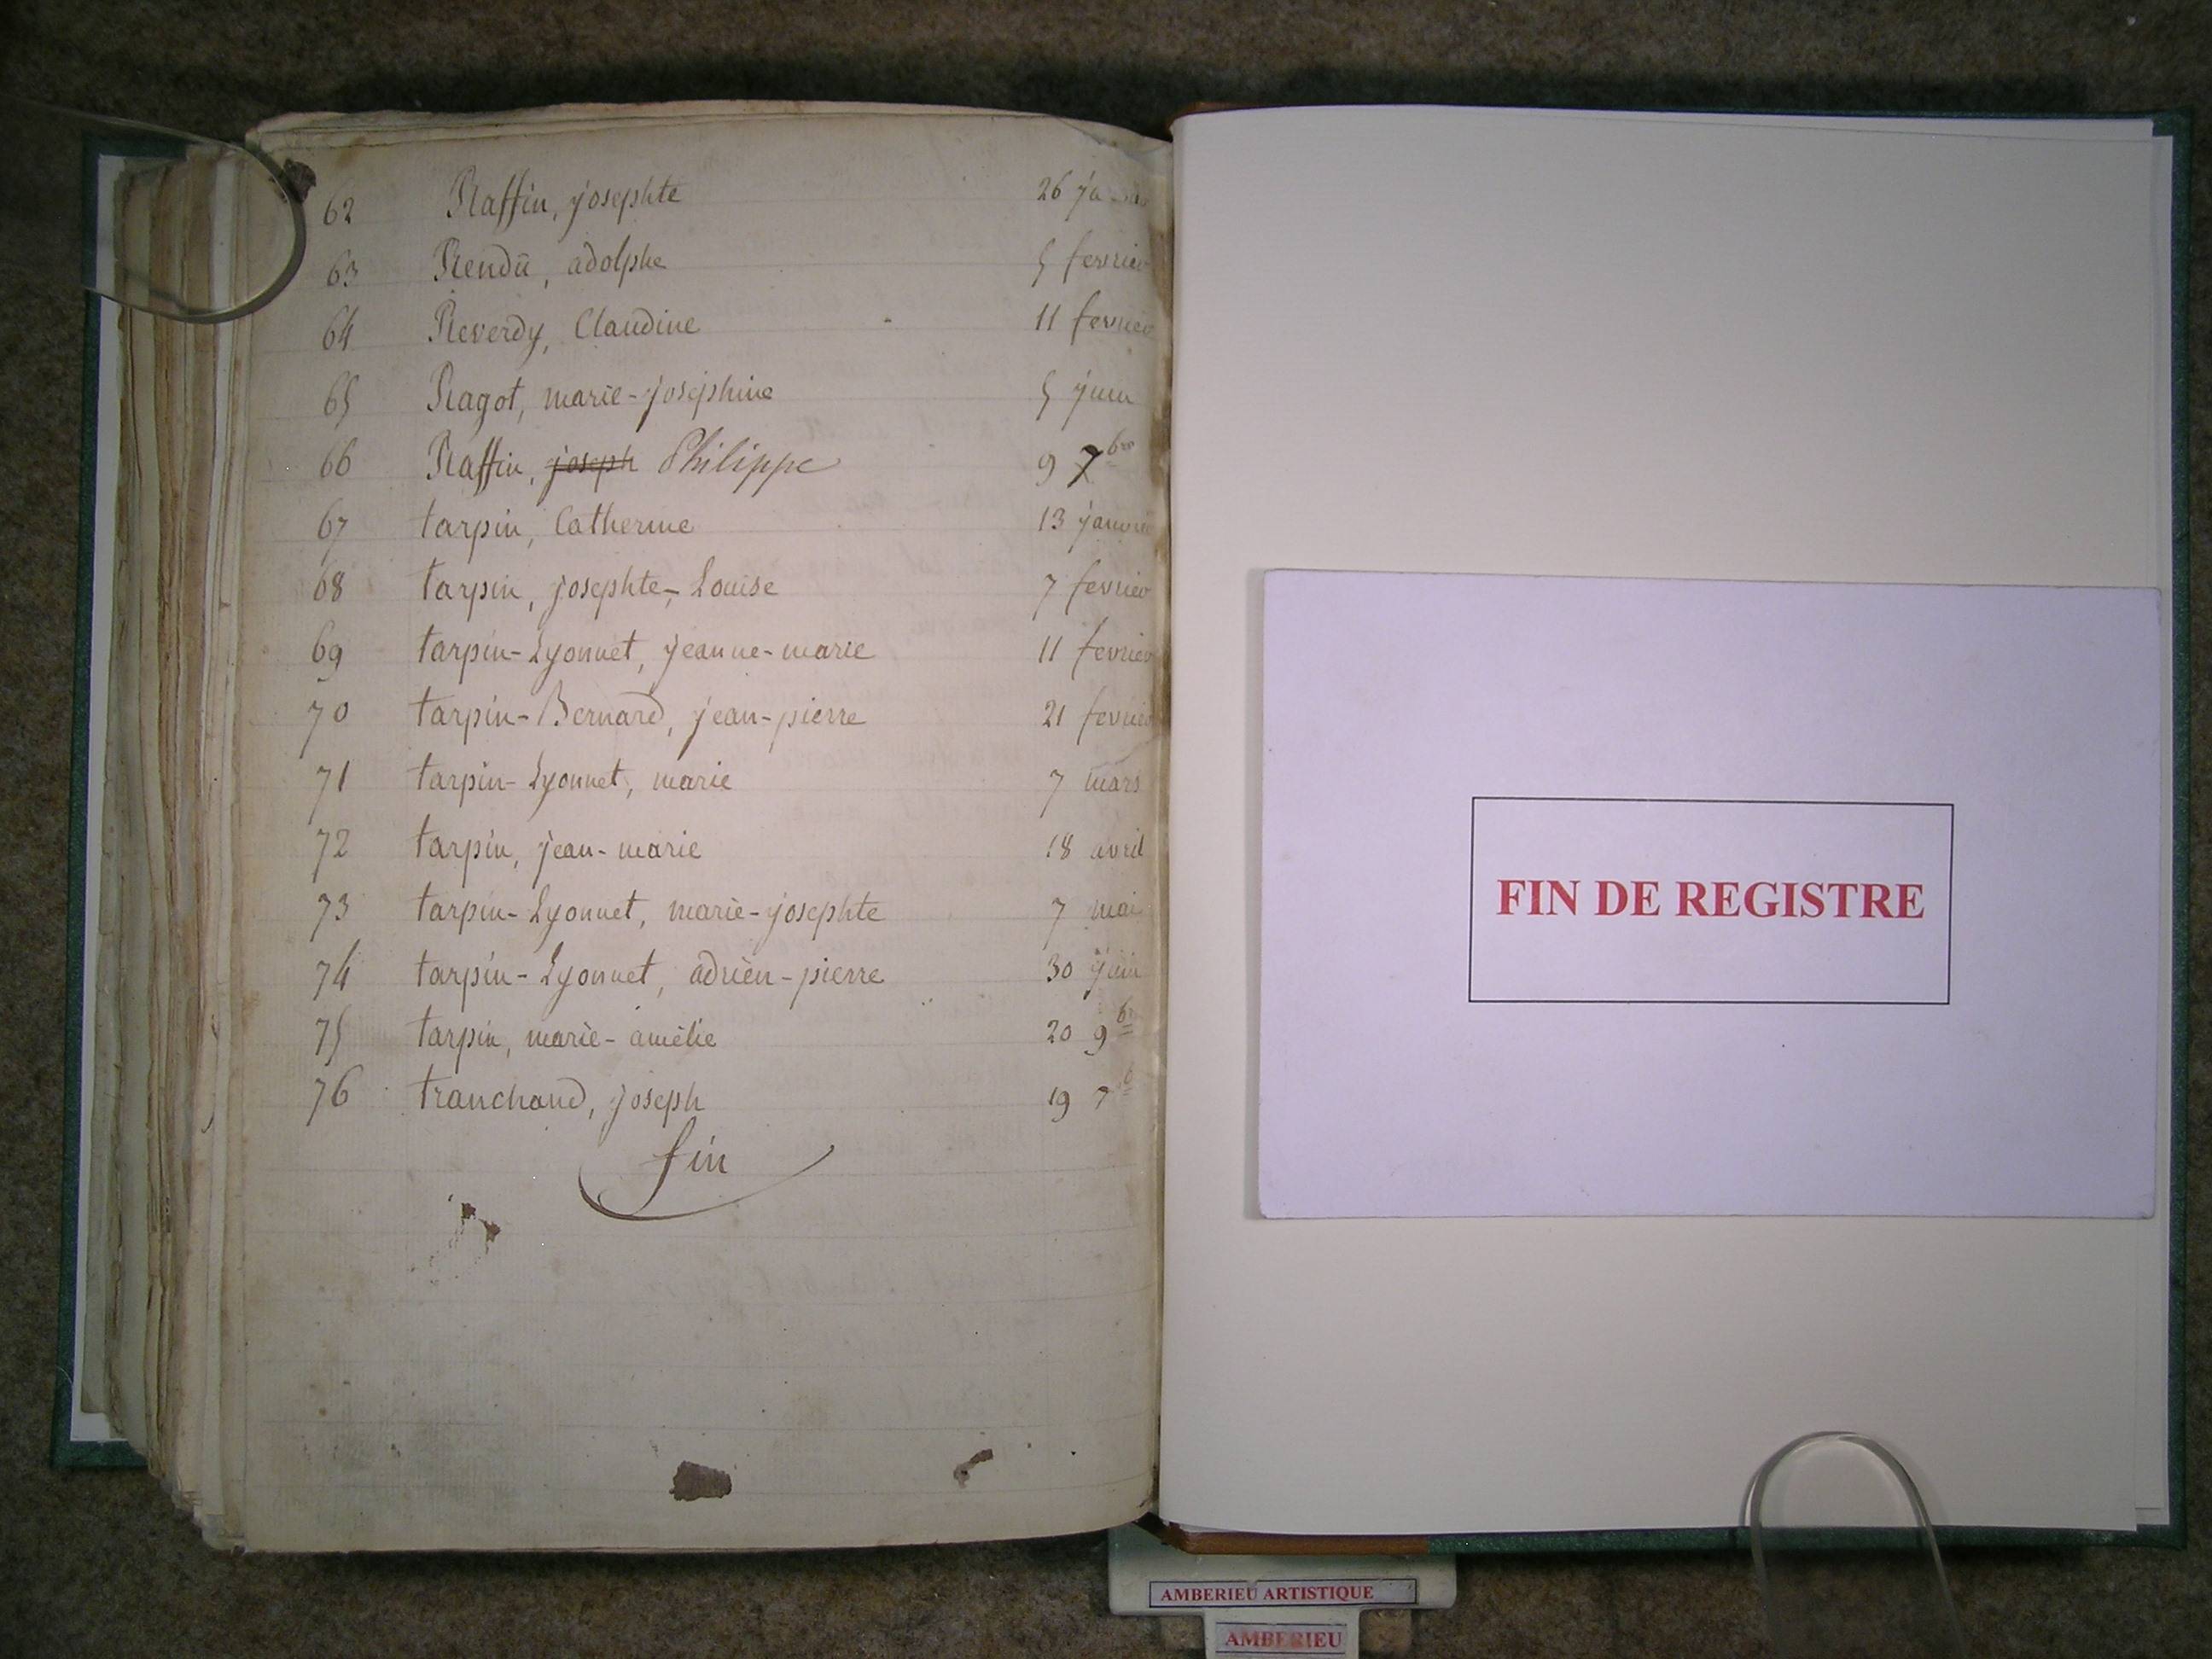 62 Raffin, josephte 26
63 Rendu, adolphe 5 fevrier
64 Reverdy, Claudine 11 fevrier
65 Ragot, marie-joséphine 5 juin
66 Raffin, joseph Philippe 9 7bre
67 tarpin, Catherine 13 janvie
68 tarpin, josephte-Louise 7 fevrier
69 tarpin-Lyonnet, jeanne-marie 11 fevrier
70 tarpin-Bernard, jean-pierre 21 fevrier
71 tarpin-Lyonnet, marie 7 mars
72 tarpin, jean-marie 18 avril
73 tarpin-Lyonnet, marie-josephte 7 mai
74 tarpin-Lyonnet, adrien-pierre 30 juin
75 tarpin, marie-amélie 20 9br
76 tranchand, joseph 19 7b
fin
FIN DE REGISTRE
AMBERIEU ARTISTIQUE
AMBERIEU